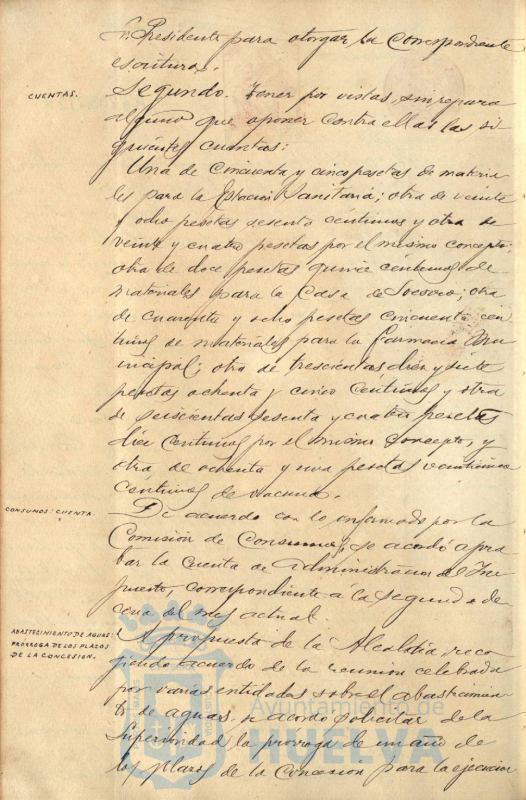 Sr. Presidente para otorgar la correspondiente
escritura.
CUENTAS.
Segundo. Tener por vistas, sin reparo
alguno que oponer contra ellas las si
guientes cuentas:
Una de cincuenta y cinco pesetas de materia
les para la Estación Sanitaria; otra de veinte
y ocho pesetas sesenta céntimos y otra de
veinte y cuatro pesetas por el mismo concepto;
otra de doce pesetas quince céntimos de
materiales para la Casa de Socorro; otra
de cuarenta y ocho pesetas cincuenta cén
timos de materiales para la farmacia Mu
nicipal; otra de trescientas diez y siete
pesetas ochenta y cinco céntimos y otra
de seiscientas sesenta y cuatro pesetas
diez céntimos por el mismo concepto, y
otra de ochenta y una pesetas veinticinco
céntimos de vacuna.
CONSUMOS: CUENTA.
De acuerdo con lo informado por la
Comisión de Consumos, se acordó apro
bar la cuenta de administración del Im
puesto, correspondiente á la segunda de
cena del mes actual.
ABASTECIMIENTO DE AGUAS:
PRÓRROGA DE LOS PLAZOS
DE LA CONCESIÓN.
A propuesta de la Alcaldía, reco
giendo acuerdo de la reunión celebrada
por varias entidades sobre el abastecimien
to de aguas, se acordó solicitar de la
Superioridad la prórroga de un año de
los plazos de la concesión para la ejecución
Ayuntamiento de
HUELVA